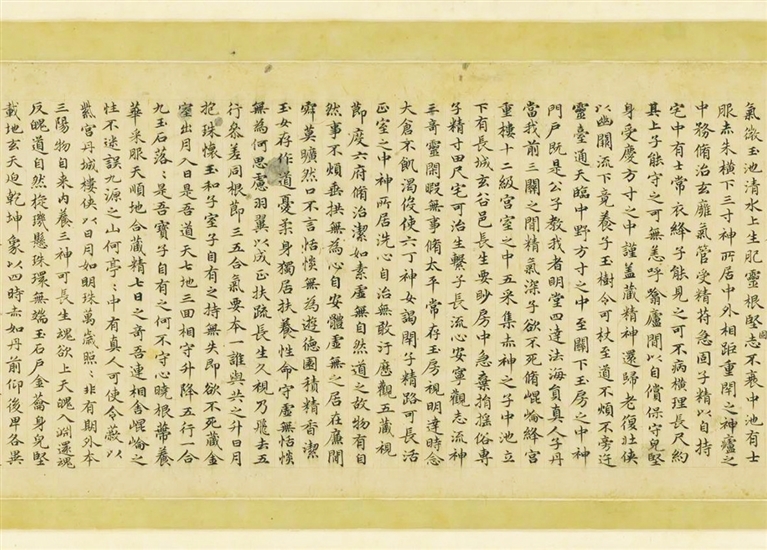 氣微玉池清水上生肥靈根堅固志不衰中池有士
服赤朱橫下三寸神所居中外相距重閇之神廬之
中務脩治玄廱氣管受精苻急固子精以自持
宅中有士常衣絳子能見之可不病橫理長尺約
其上子能守之可無恙呼翕廬間以自償保守皃堅
身受慶方寸之中謹蓋藏精神還歸老復壯俠
以幽闕流下竟養子玉樹令可杖至道不煩不旁迕
靈臺通天臨中野方寸之中至關下玉房之中神
門戶既是公子教我者明堂四達法海員真人子丹
當我前三關之間精氣深子欲不死脩崐崘絳宮
重樓十二級宮室之中五采集赤神之子中池立
下有長城玄谷邑長生要眇房中急棄捐搖俗專
子精寸田尺宅可治生繫子長流心安寧觀志流神
三奇靈閑暇無事脩太平常存玉房視明達時念
大倉不飢渴役使六丁神女謁閇子精路可長活
正室之中神所居洗心自治無敢汙歷觀五藏視
節度六府脩治潔如素虛無自然道之故物有自
然事不煩垂拱無為心自安體虛無之居在廉間
寂莫曠然口不言恬惔無為遊德園積精香潔
玉女存作道憂柔身獨居扶養性命守虛無恬惔
無為何思慮羽翼以成正扶疏長生久視乃飛去五
行參差同根節三五合氣要本一誰與共之升日月
抱珠懷玉和子室子自有之持無失即欲不死藏金
室出月入日是吾道天七地三回相守升降五行一合
九玉石落〻是吾寶子自有之何不守心曉根蔕養
華采服天順地合藏精七日之奇吾連相舍崐崘之
性不迷誤九源之山何亭〻中有真人可使令蔽以
紫宮丹城樓俠以日月如明珠萬歲照〻非有期外本
三陽物自來內養三神可長生魂欲上天魄入淵還魂
反魄道自然璣懸珠環無端玉石戶金蘥身皃堅
載地玄天迫乾坤象以四時赤如丹前仰後卑各異